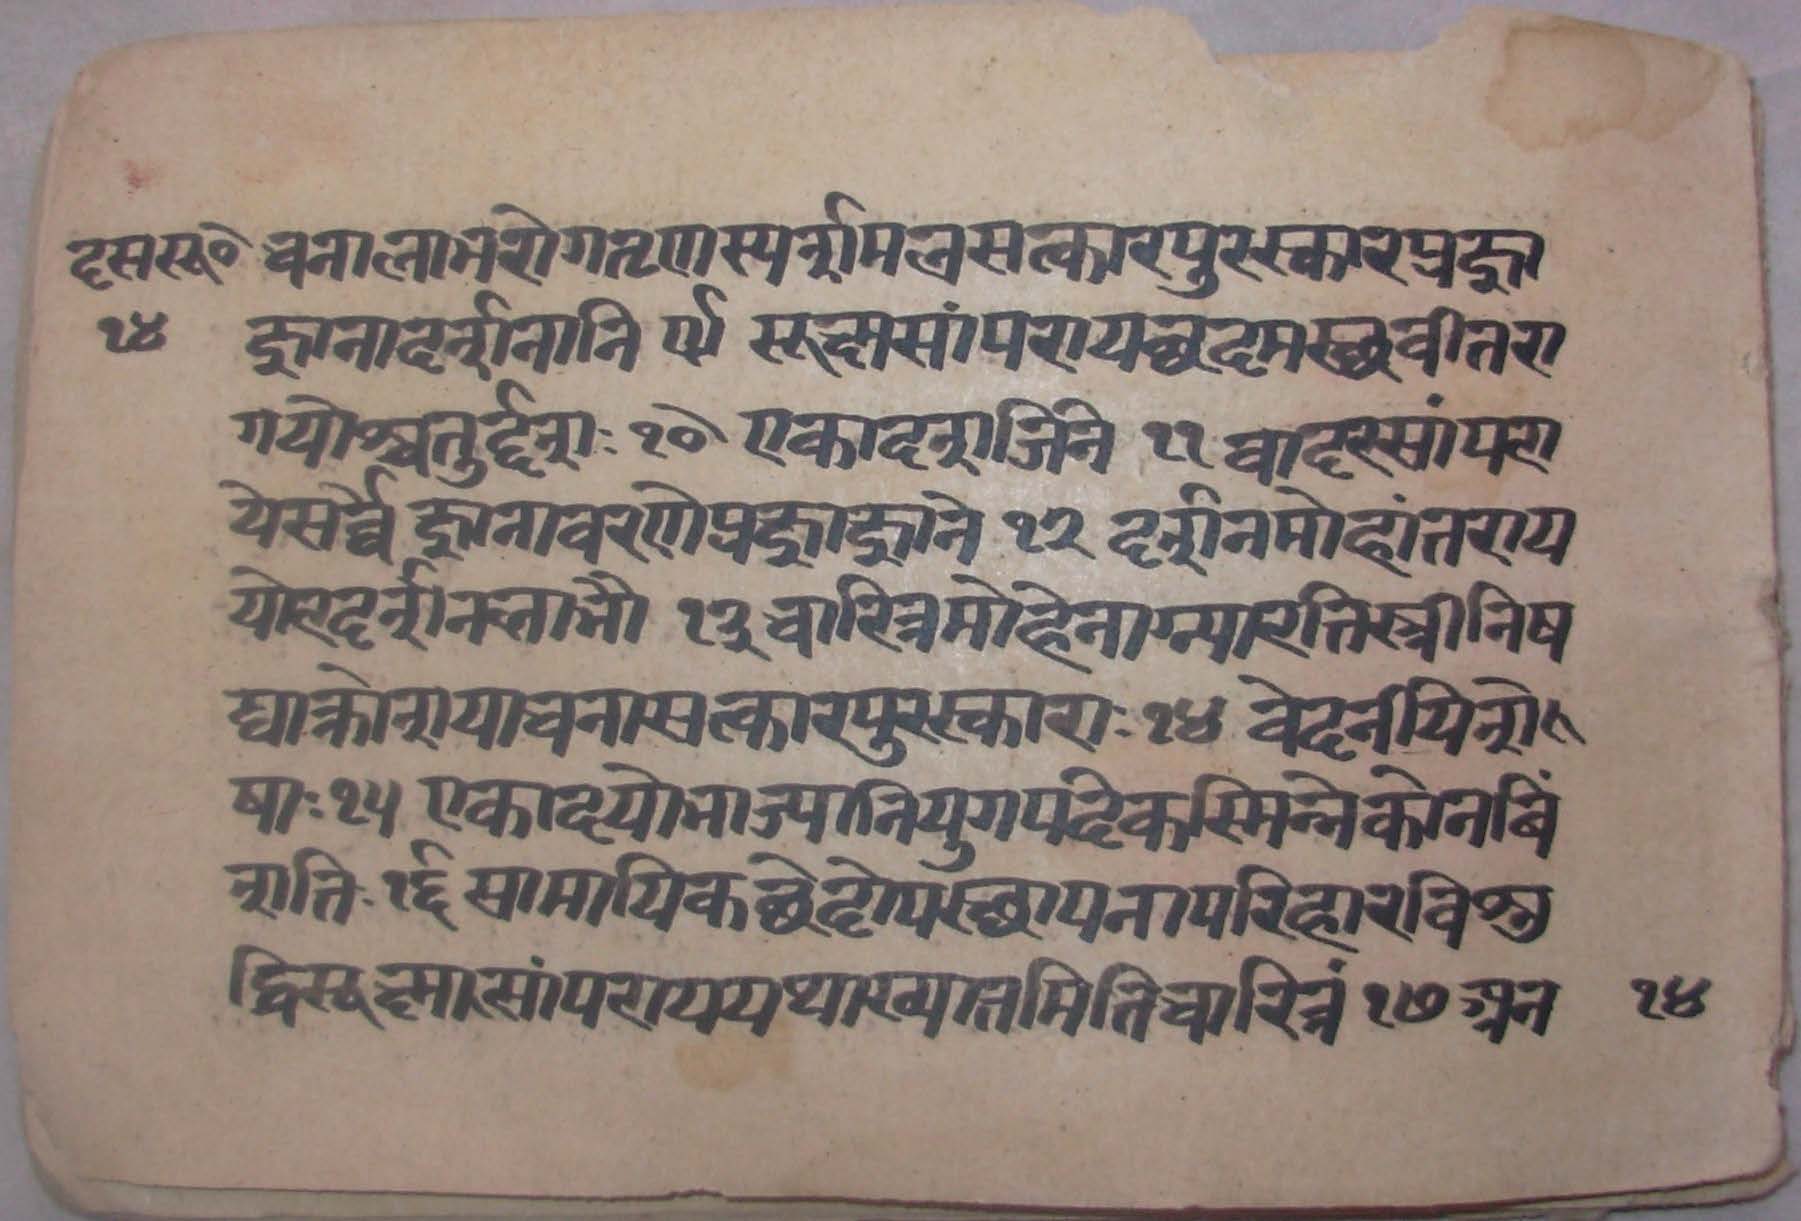 दससू० चनालाभरोगतृणस्पर्शमलसत्कारपुरस्कारप्रज्ञा
१४ ज्ञानादर्शनानि ९ सूक्ष्मसांपरायछदमस्छवीतरा
गयोश्चतुर्द्दशः १० एकादशजिने ११ बादरसांपरा
येसर्व्वे ज्ञानावरणेप्रज्ञाज्ञाने १२ दर्शनमोहांतराय
योरदर्शनालाभौ १३ चारित्रमोहेनाग्न्यारतिस्त्रीनिष
द्याक्रोशयाचनासत्कारपुरस्काराः १४ वेदनीयेशे
षाः १५ एकादयोभाज्यातनियुगपदेकस्मिन्नेकोनबिं
शतिः १६ सामायिकछेदोपस्छापनापरिहारविशु
द्धिसूक्ष्मासांपराययथाख्यातमितिचारित्रं १७ अन १४